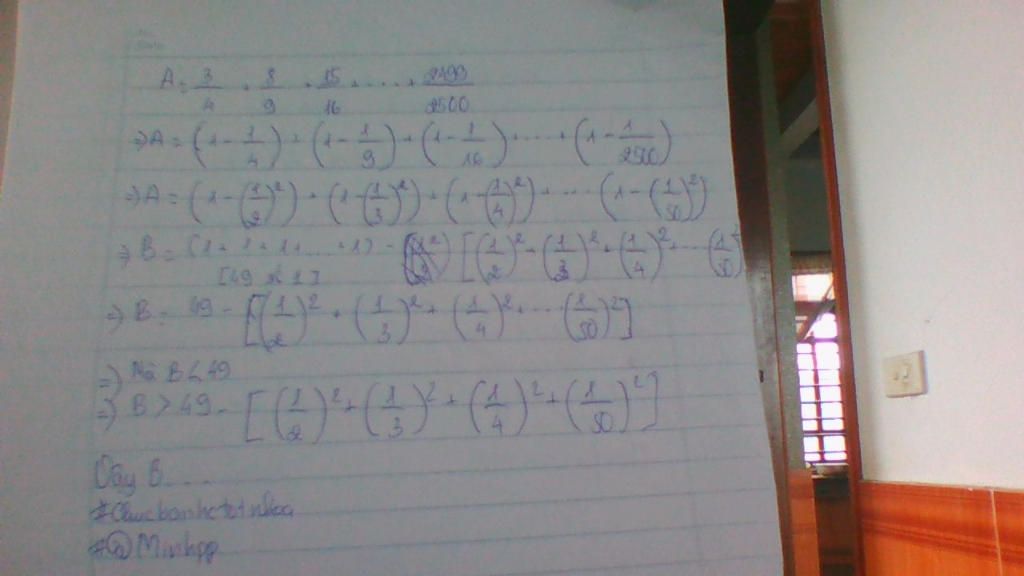 A = 3/4 + 8/9 + 15/16 + .... + 2499/2500
=> A = (1 - 1/4) + (1 - 1/9) + (1 - 1/16) + .... + (1 - 1/2500)
=> A = (1 - (1/2)²) + (1 - (1/3)²) + (1 - (1/4)²) + .... (1 - (1/50)²)
=> B = (1 + 1 + 1 + .... + 1) - [(1/2)² + (1/3)² + (1/4)² + .... (1/50)²
[49 số 1]
=> B = 49 - [(1/2)² + (1/3)² + (1/4)² + .... (1/50)²]
=> Mà B < 49
=> B > 49 - [(1/2)² + (1/3)² + (1/4)² + (1/50)²]
Vậy B....
#Chucbanhctotnhaa
#@Minhpp